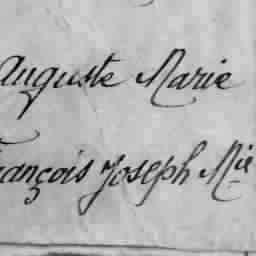 Auguste Marie
François Joseph Mie